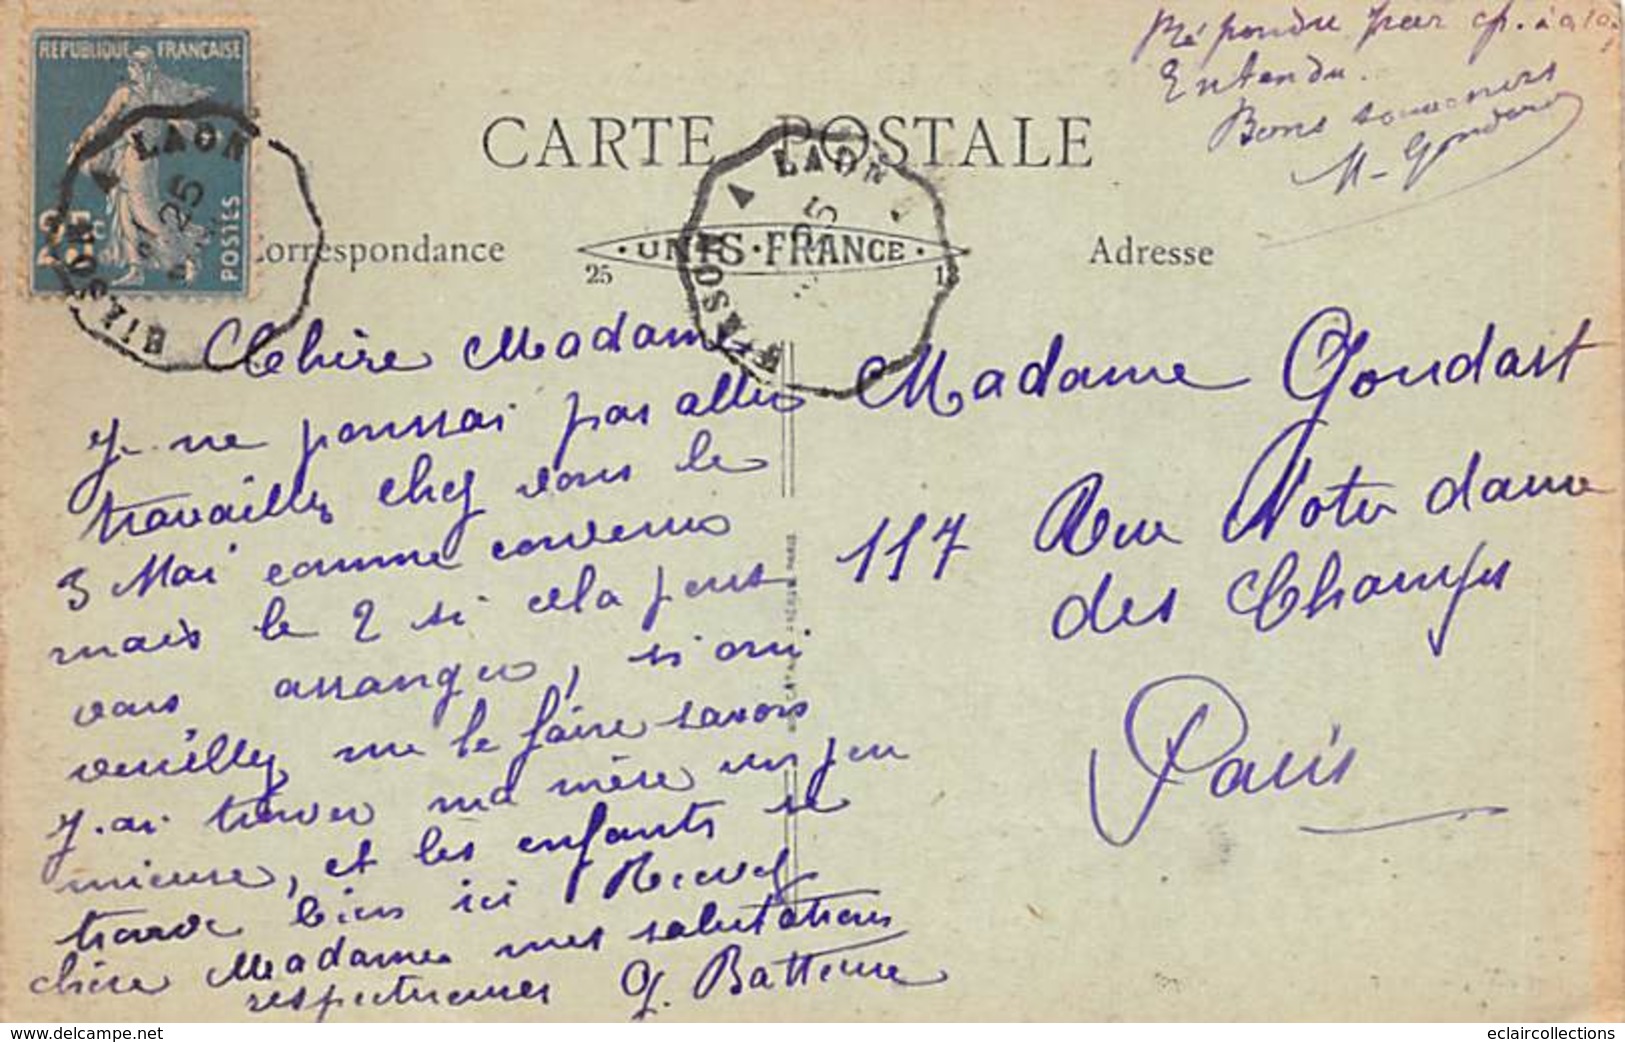 REPUBLIQUE FRANÇAISE
25c
POSTES
HIRSON A LAON
25
CARTE POSTALE
Répondu par cp.
Entendu.
Bons souvenirs
M-Goudard
Correspondance
· UNIS · FRANCE ·
25 13
Adresse
HIRSON A LAON
25
Chère Madame
Je ne poussai pas aller
travailler chez vous le
3 Mai comme convenus
mais le 2 si cela peus
vous arranger, si oui
veuillez me le faire savoir
J.ai trouver ma mère un peu
mieuse, et les enfants se
trouve bien ici Recevez
chère Madame mes salutations
respectueuses G. Batteuse
Madame Goudart
117 Rue Notre dame
des Champs
Paris
www.delcampe.net
eclaircollections